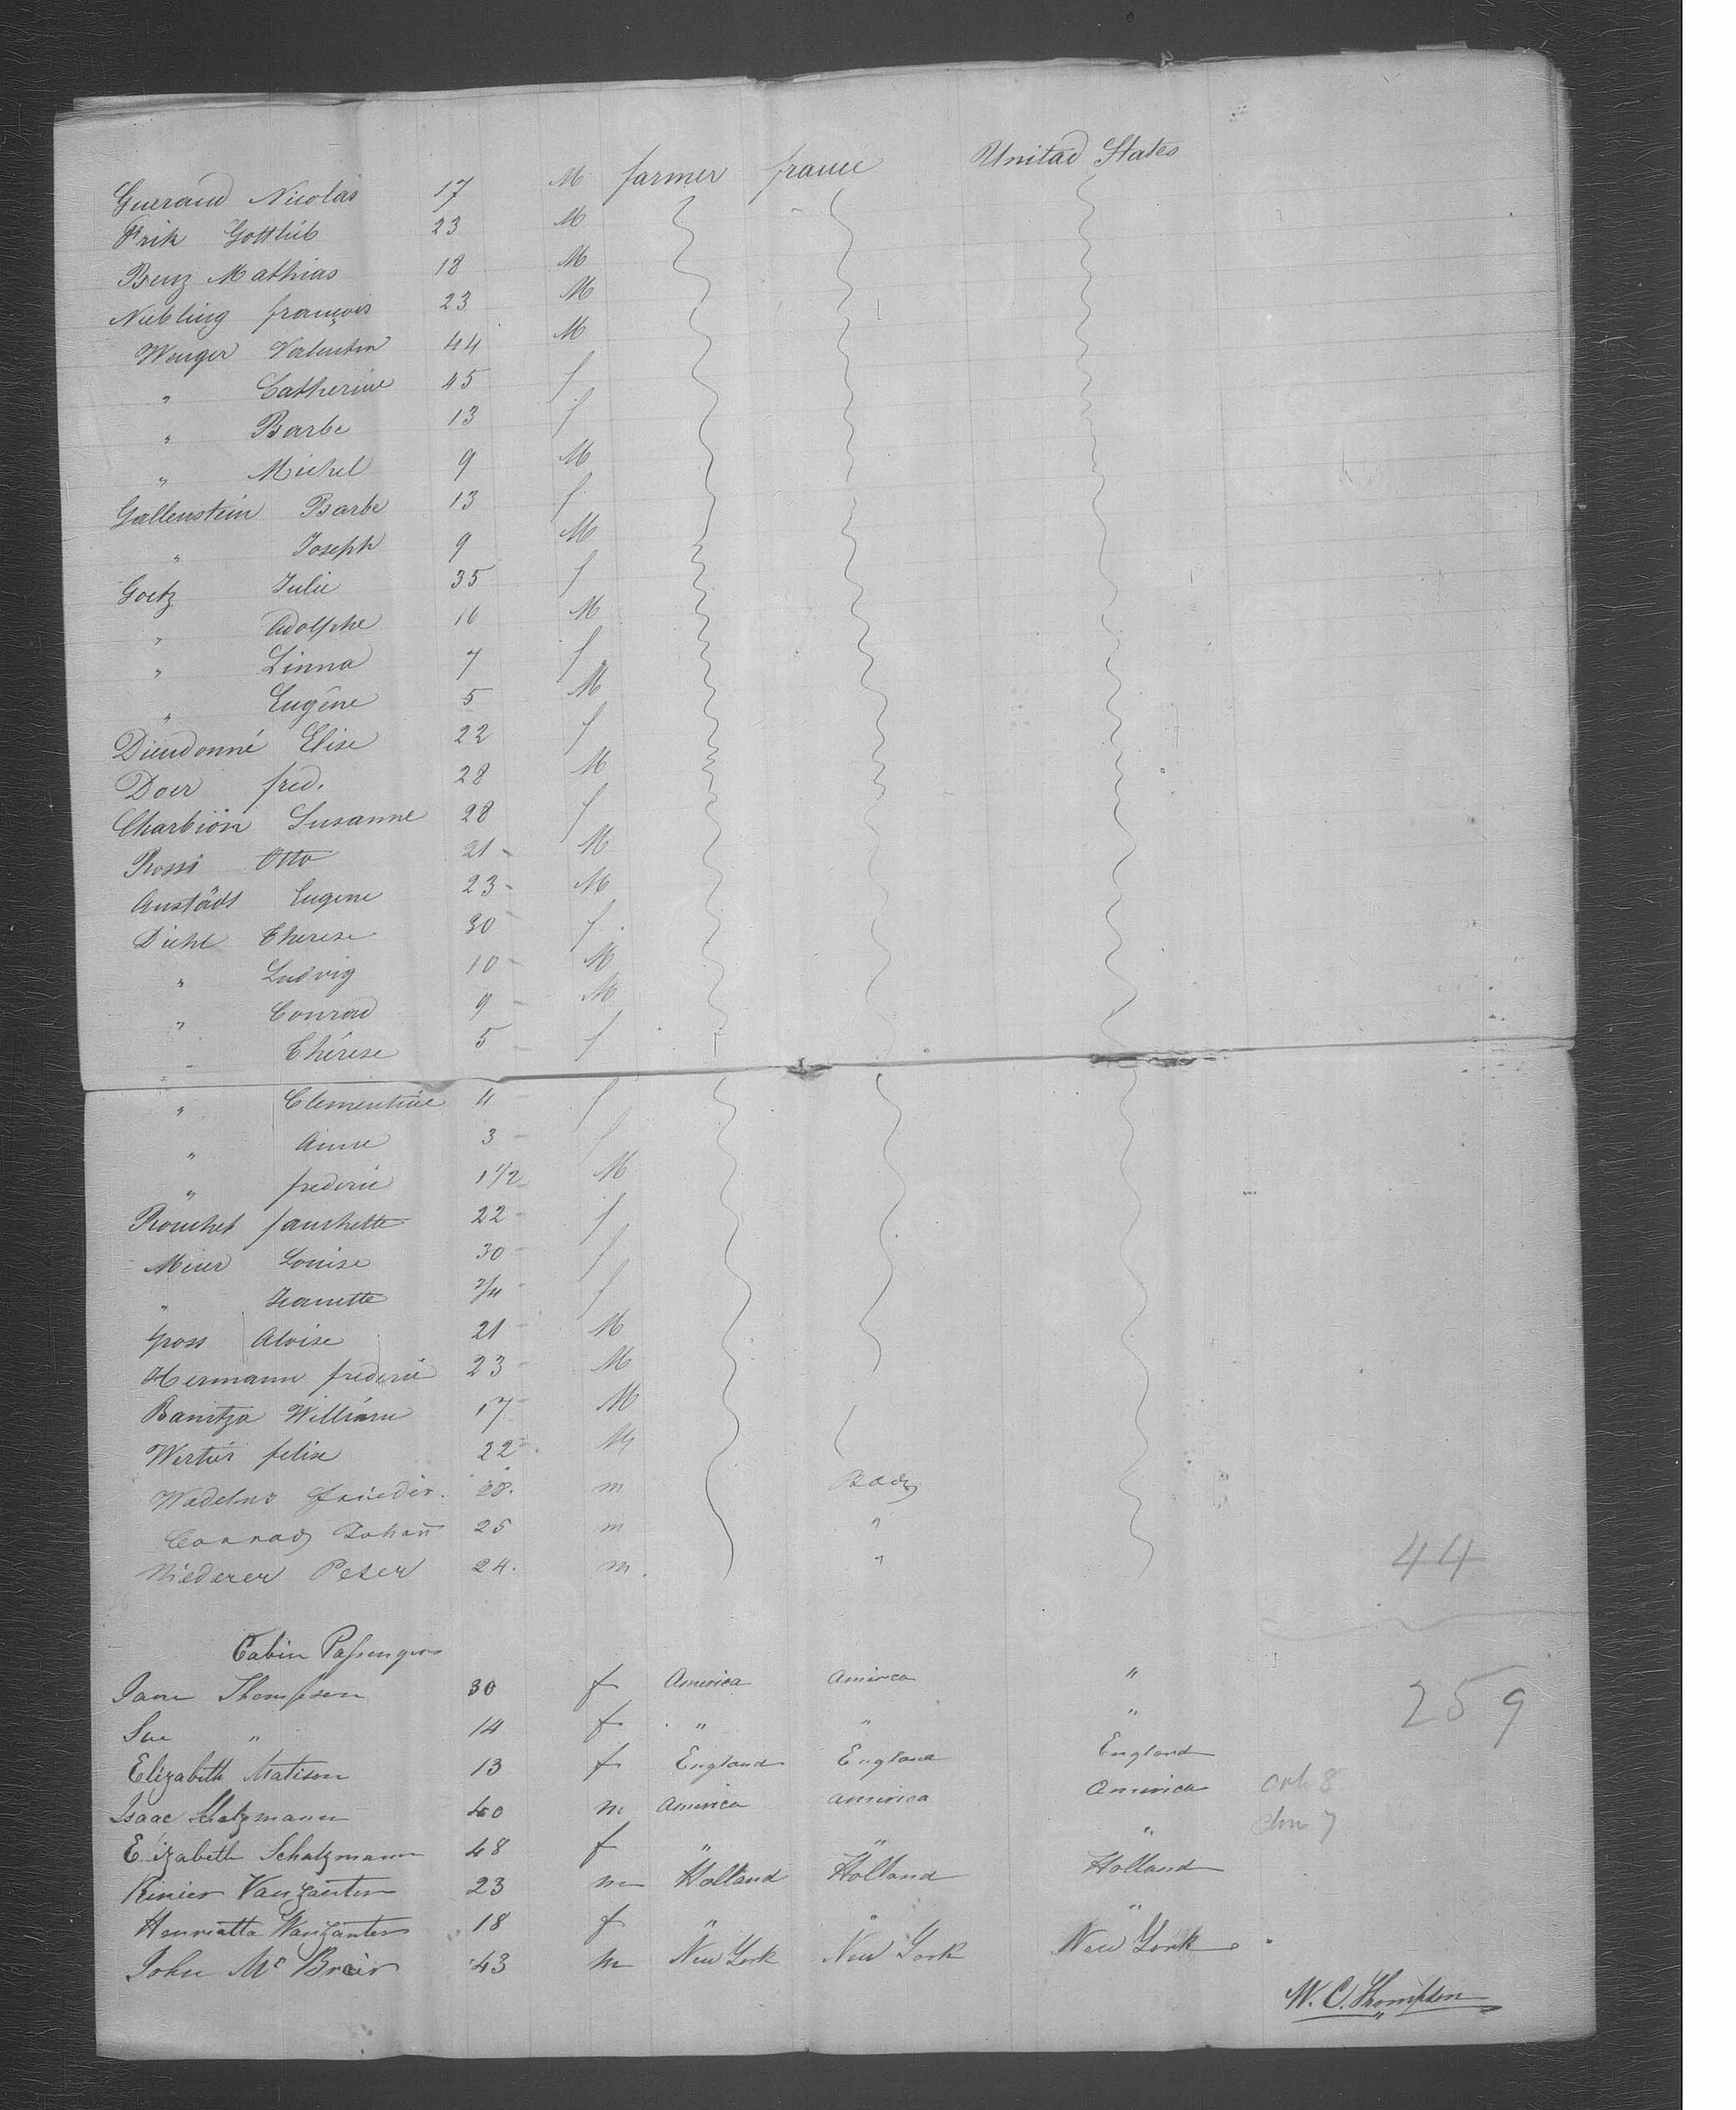 Guerand Nicolas 17 M farmer france Unitad States
Frik Gottlieb 23 M
Benz Mathias 18 M
Nübling françois 23 M
Wenger Valentin 44 M
" Catherine 45 f
" Barbe 13 f
" Michel 9 M
Gallenstein Barbe 13 f
" Joseph 9 M
Goetz Julie 35 f
" Adolphe 16 M
" Linna 7 f
" Eugène 5 M
Dieudonné Elise 22 f
Doer fred. 28 M
Charbion Susanne 28 f
Rossi Otto 21 M
Anstädt Eugene 23 M
Diehl Therese 30 f
" Ludvig 10 M
" Conrad 9 M
" Thérese 5 f
" Clementine 4 f
" Anne 3 f
" frederic 1 1/2 M
Rouchet fanchette 22 f
Meier Louise 30 f
" Jeanette f
Gross Aloise 21 M
Hermann frederic 23 M
Banitza William 17 M
Werteis felix 22 M
Frieder. 28. m Baden
Conrad Johann 25 m "
Niederer Peter 24. m. "
44
Cabin Passengers
Jane Thompson 30 f America America "
Sue " 14 f " " "
259
Elizabeth Matison 13 f England England England
Isaac Schatzmann 40 m America America America
Elizabeth Schatzmann 48 f " " "
Rinier Vanzanten 23 m Holland Holland Holland
Henrietta Vanzanten 18 f " " "
John Mc Brair 43 m New York New York New York
W. C. Thompson